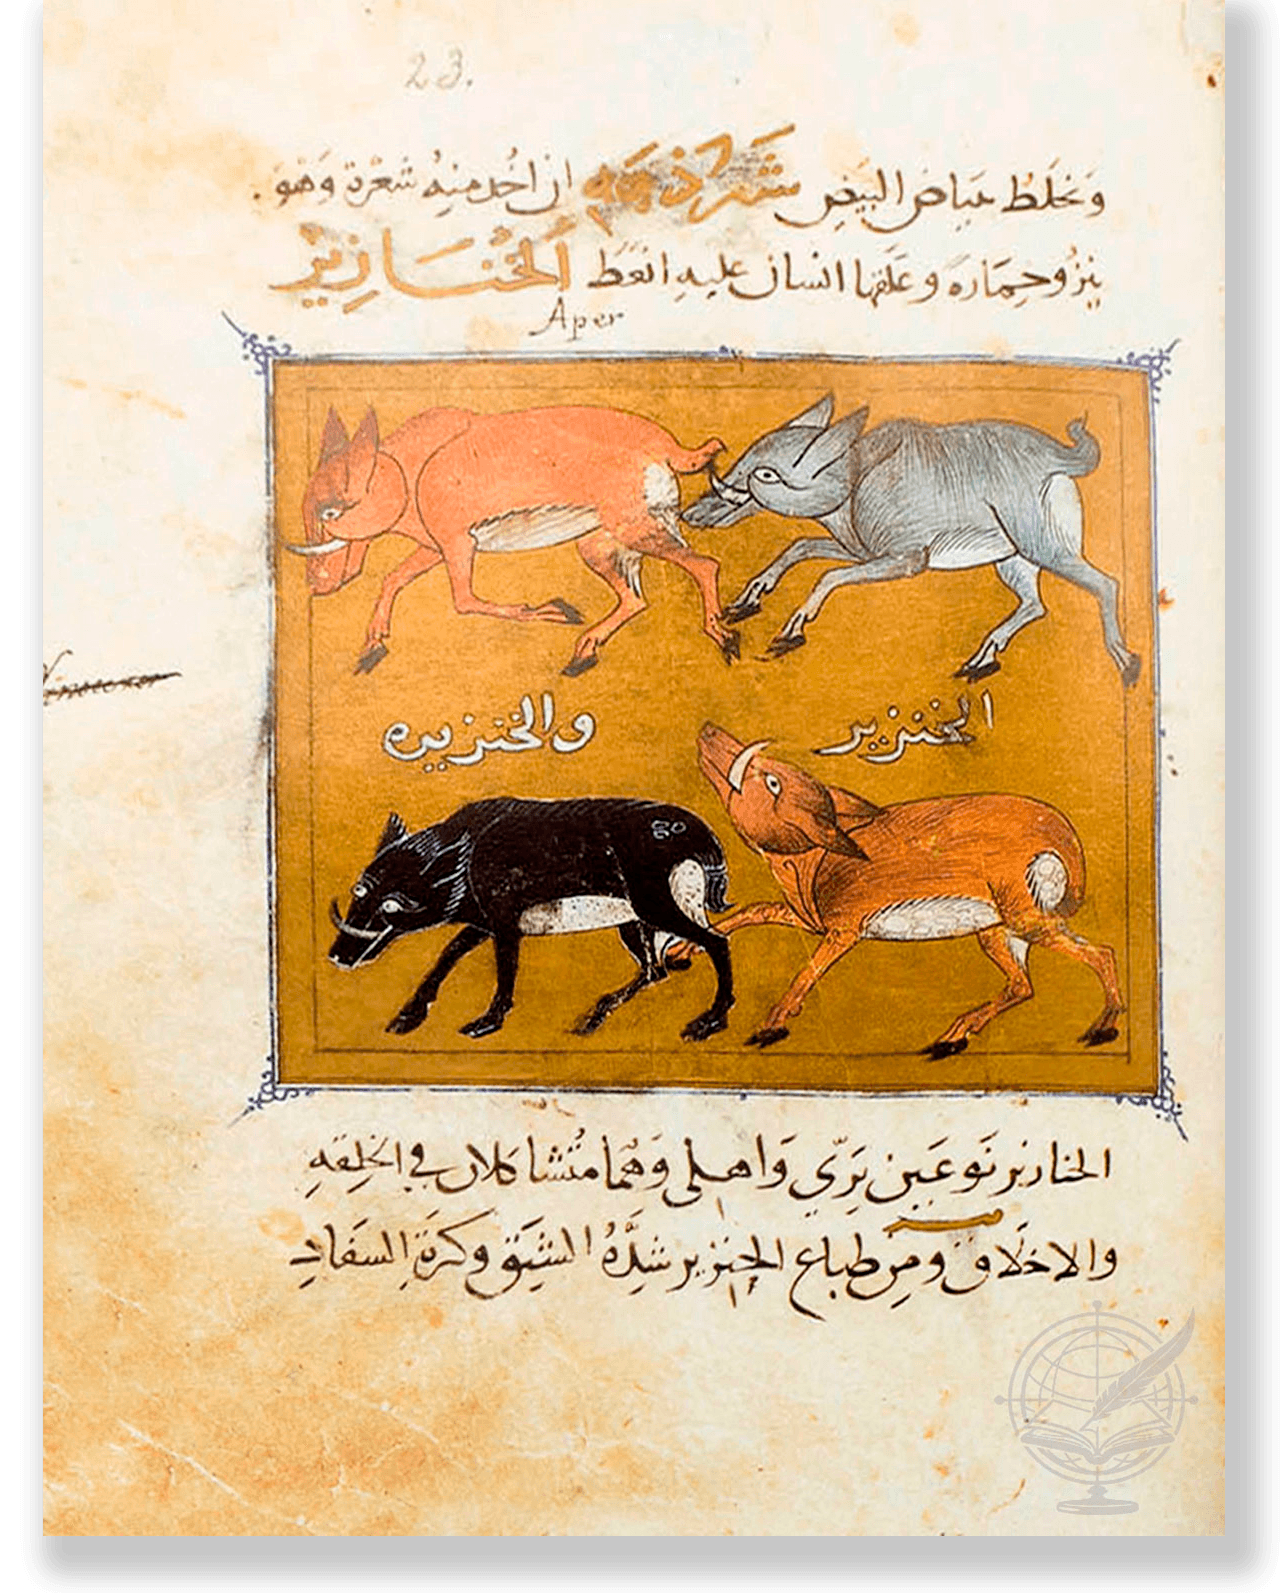 23.
وَيخلَطُ ببَياض البَيضِ شَعَرُ ذَنَبِهِ ان اخذ منهُ شعْرة وَهوَ
ينزُو حِمَارَه وعَلّقها انسان عليهِ انْعَظَ الخَنَازِيْرُ
Aper
الخنزير
والخنزيره
الخنازير نَوعَين بَرّي وَاهلى وَهُما مُتشاكلان في الخلقه
والاخلاق ومِن طباع الخنزير شدّهُ الشبَق وكَثرَة السفَادِ